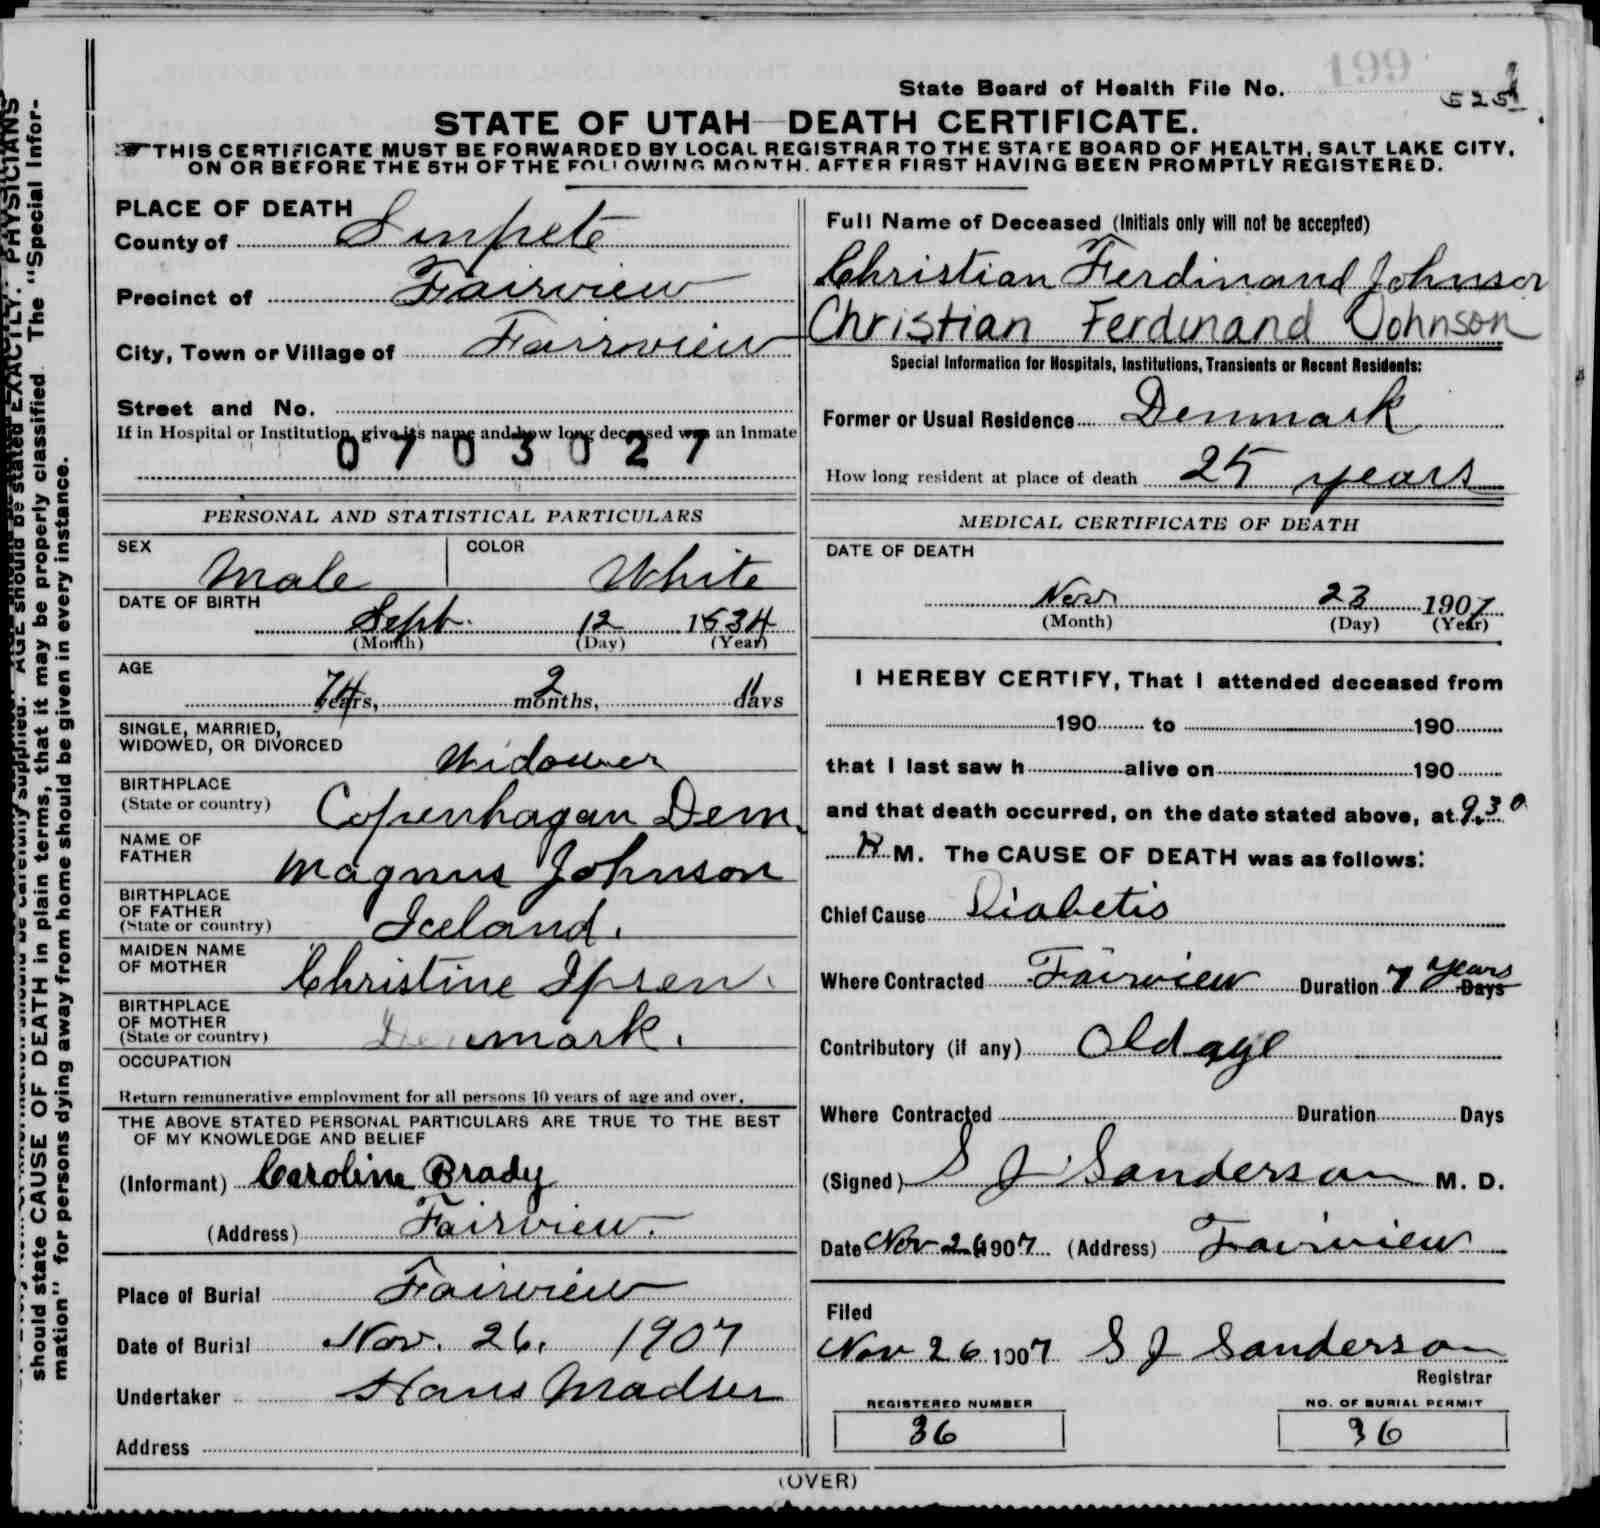 199
State Board of Health File No. 525
STATE OF UTAH—DEATH CERTIFICATE.
THIS CERTIFICATE MUST BE FORWARDED BY LOCAL REGISTRAR TO THE STATE BOARD OF HEALTH, SALT LAKE CITY,
ON OR BEFORE THE 5TH OF THE FOLLOWING MONTH. AFTER FIRST HAVING BEEN PROMPTLY REGISTERED.
PLACE OF DEATH
County of Sanpete
Precinct of Fairview
City, Town or Village of Fairview
Street and No.
If in Hospital or Institution, give its name and how long deceased was an inmate
0703027
PERSONAL AND STATISTICAL PARTICULARS
SEX Male COLOR White
DATE OF BIRTH
Sept. 12 1834
(Month) (Day) (Year)
AGE
74 years, 2 months, 11 days
SINGLE, MARRIED,
WIDOWED, OR DIVORCED Widower
BIRTHPLACE
(State or country) Copenhagan Dem.
NAME OF
FATHER Magnus Johnson
BIRTHPLACE
OF FATHER
(State or country) Iceland.
MAIDEN NAME
OF MOTHER Christine Ipsen.
BIRTHPLACE
OF MOTHER
(State or country) Denmark.
OCCUPATION
Return remunerative employment for all persons 10 years of age and over.
THE ABOVE STATED PERSONAL PARTICULARS ARE TRUE TO THE BEST
OF MY KNOWLEDGE AND BELIEF
(Informant) Caroline Brady
(Address) Fairview.
Place of Burial Fairview
Date of Burial Nov. 26, 1907
Undertaker Hans Madsen
Address
Full Name of Deceased (Initials only will not be accepted)
Christian Ferdinand Johnson
Christian Ferdinand Johnson
Special Information for Hospitals, Institutions, Transients or Recent Residents:
Former or Usual Residence Denmark
How long resident at place of death 25 years
MEDICAL CERTIFICATE OF DEATH
DATE OF DEATH
Nov 23 1907
(Month) (Day) (Year)
I HEREBY CERTIFY, That I attended deceased from
190 to 190
that I last saw h alive on 190
and that death occurred, on the date stated above, at 9.30
M. The CAUSE OF DEATH was as follows:
Chief Cause Diabetis
Where Contracted Fairview Duration 7 years Days
Contributory (if any) Old age
Where Contracted Duration Days
(Signed) S J Sanderson M. D.
Date Nov 26 1907 (Address) Fairview
Filed
Nov 26 1907 S J Sanderson
Registrar
REGISTERED NUMBER NO. OF BURIAL PERMIT
36 36
(OVER)
should state CAUSE OF DEATH in plain terms, that it may be properly classified. The "Special Infor-
mation" for persons dying away from home should be given in every instance.